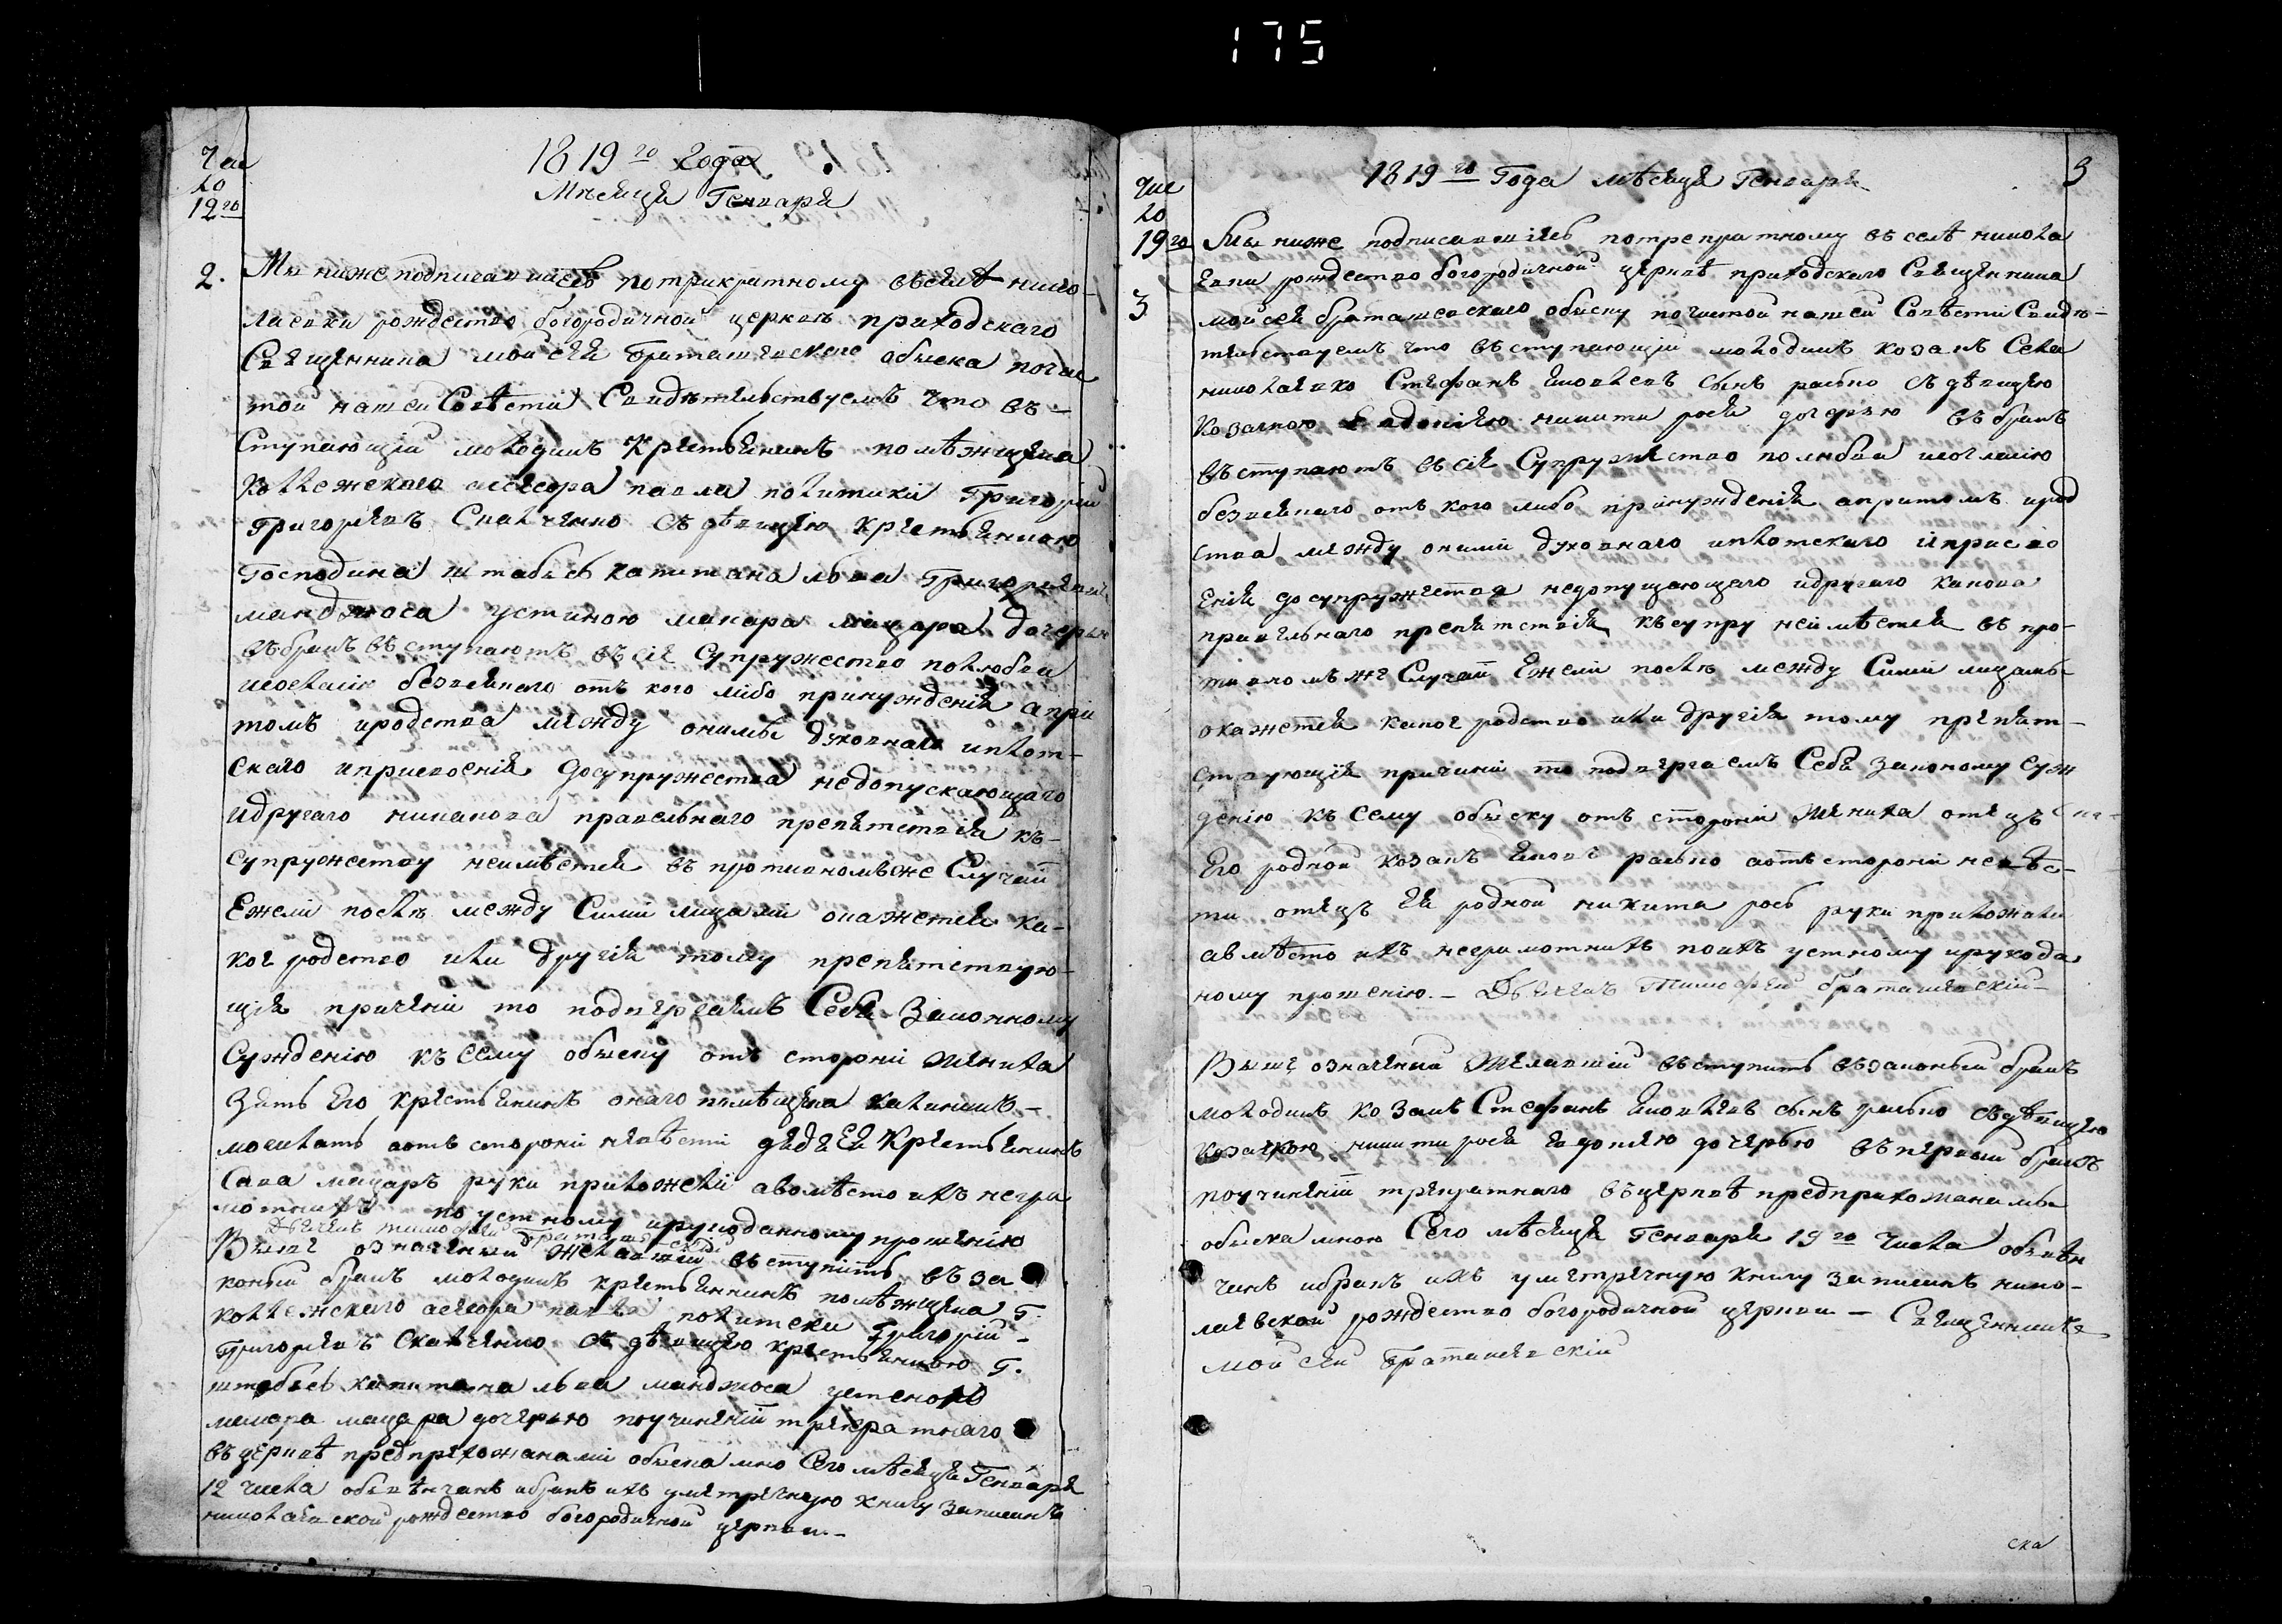 175
Чис
ло
12го
1819го года
Мѣсяця Генваря
2.
Мы нижеподписавшіесь потрикратному въселѣ нико-
лаевки рождество богородичной церквѣ приходскаго
Священника моисея Браташевского обыска почис
той нашеи Совѣсти Свидѣтельствуемъ что въ-
Ступающій молодикъ крестьянинъ помѣжщика
Коллежского асесора павла политики Григорій
григориевъ Скальченко съ дѣвицею крестьянкою
Господина штабысь капитана льва Григориевича
мандзюоса устиною макара мацара дочерью
въбракъ въступаютъ въсіе Супружество полюбви
исогласію безвсякаго отъ кого лібо принужденія апри
томъ иродства между онимы духовнаго иплот-
Скаго иприсвоенія досупружества недопускающаго
идругаго никакова правельнаго препятствія къ-
Супружеству неимѣстея въ противномъже Случаи
Ежели послѣ между Сими лицами окажется ка-
кое родство или другія тому препятствую-
щія причини то подвергаемъ Себя Законному
Сужденію къ Сему обыску отъ стороны жениха
зять Его крестьянинъ онаго помѣщика
аотъ стороні невѣсты дядя Ея Крестьянинъ
Сава мацаръ руки приложели авомѣсто ихъ негра
мотнихъ по устному ирукоданному прошенію
Дьячекъ тимофей Браташевскій
Выше означеный желавшій въступить въ за
конный бракъ молодикъ крестьянинъ помѣжщика Г.
коллежского асесора павла политики Григорій-
Григориевъ Скальченко съ дѣвицею крестьянкою Г.
штабысь капитана льва мандзюоса устеною
макара мацара дочерью поучиненіи трекратнаго
въцерквѣ предприхожанамі обыска мною Сего мѣсяця Генваря
12 числа обвѣнчанъ ибракъ ихъ уметречную книгу записанъ
николаевской рождество богородичной церкви-
3
Чис
ло
19го
1819го Года мѣсяця Генваря
3
Мы ниже подписавшіясь потрекратному въ селѣ никола
евки рождество богородичной церквѣ приходскаго Священника
моисея браташевскаго обыску почистой нашеи Совѣсти Свидѣ-
тельствуемъ что въступающій молодикъ козакъ Села
николаевки Стефанъ сынъ съдѣвицею
козачкою Евдокіею никити рося дочерью въ бракъ
въступаютъ въсіе Супружество полюбви исогласію
безвсякаго отъ кого либо принужденія апритомъ ирод
ства между оними духовнаго иплотскаго иприсво
енія досупружества недопущающаго идругаго какова
правельнаго препятствія къ супру неимѣетея въ про-
тивномъже Случаи Ежели послѣ между Сими лицамы-
окажетея какое родство или другія тому препят-
ствующія причини то подвергаемъ Себя законому Суж
денію къ Сему обыску отъ стороні жениха отецъ
Его родной козакъ аотъстороні невѣс-
ти отецъ Ея родной никита рось руки приложили
авмѣсто ихъ неграмотнихъ поихъ устному ирукода
ному прошенію.- Дьячекъ Тимофей браташевскій-
Выше означеный желавшій въступить възаконый бракъ
молодикъ козакъ Стефанъ сынъ съдѣвицею
козачкою никити рося евдокиею дочерью въ первый бракъ
поучиненіи трекратнаго въцерквѣ предприхожанамы
обыска мною Сего мѣсяця Генваря 19го числа обвѣн
чанъ ибракъ ихъ уметречную книгу записанъ нико-
лаевской рождество богородичной церкви - Священникъ
моисей Браташевскій
ска